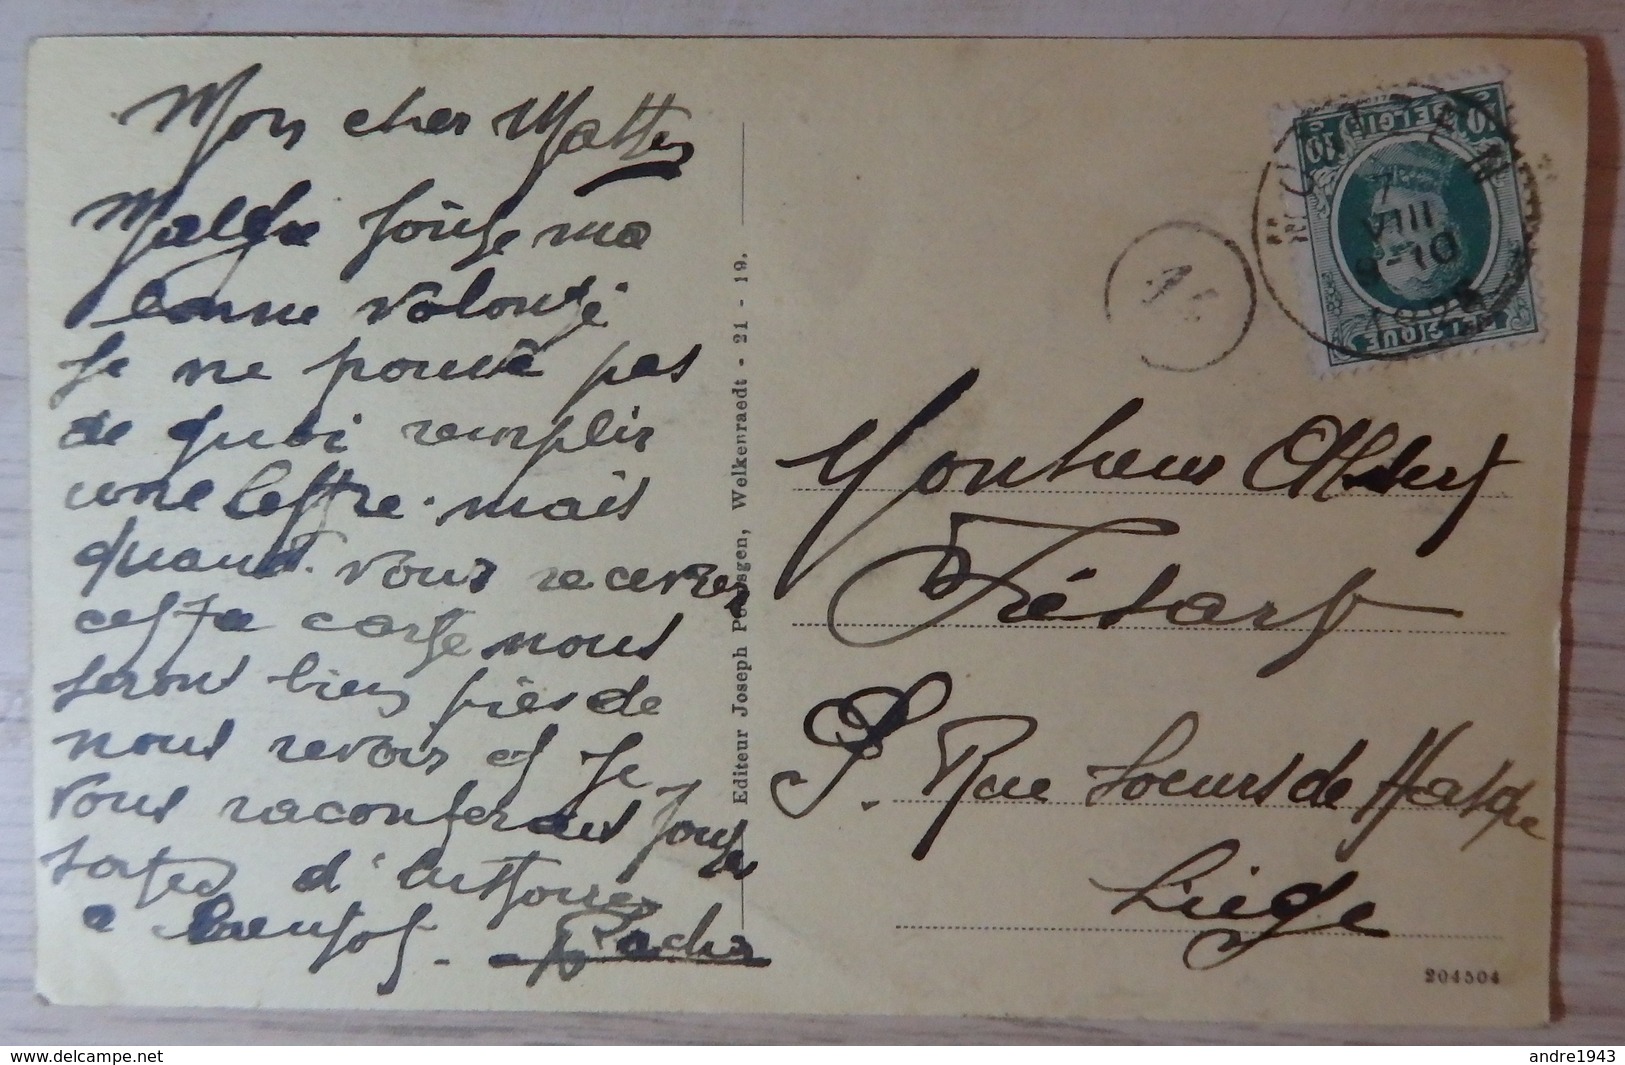 Mon cher Matter
Malgre toute ma
bonne volonté
Je ne pouvé pas
de quoi remplir
une lettre. mais
quand vous recevrez
cette carte nous
serons bien près de
nous revoir et Je
vous raconterais toute
sortes d'histoires
a bientot.
Editeur Joseph Pe sgen, Welkenraedt - 21 - 19.
BELGIE
10 10
7
VIII
9-10
BELGIQUE
Monsieur Albert
Frésart
Rue Soeurs de Hasque
Liège
204504
andre1943